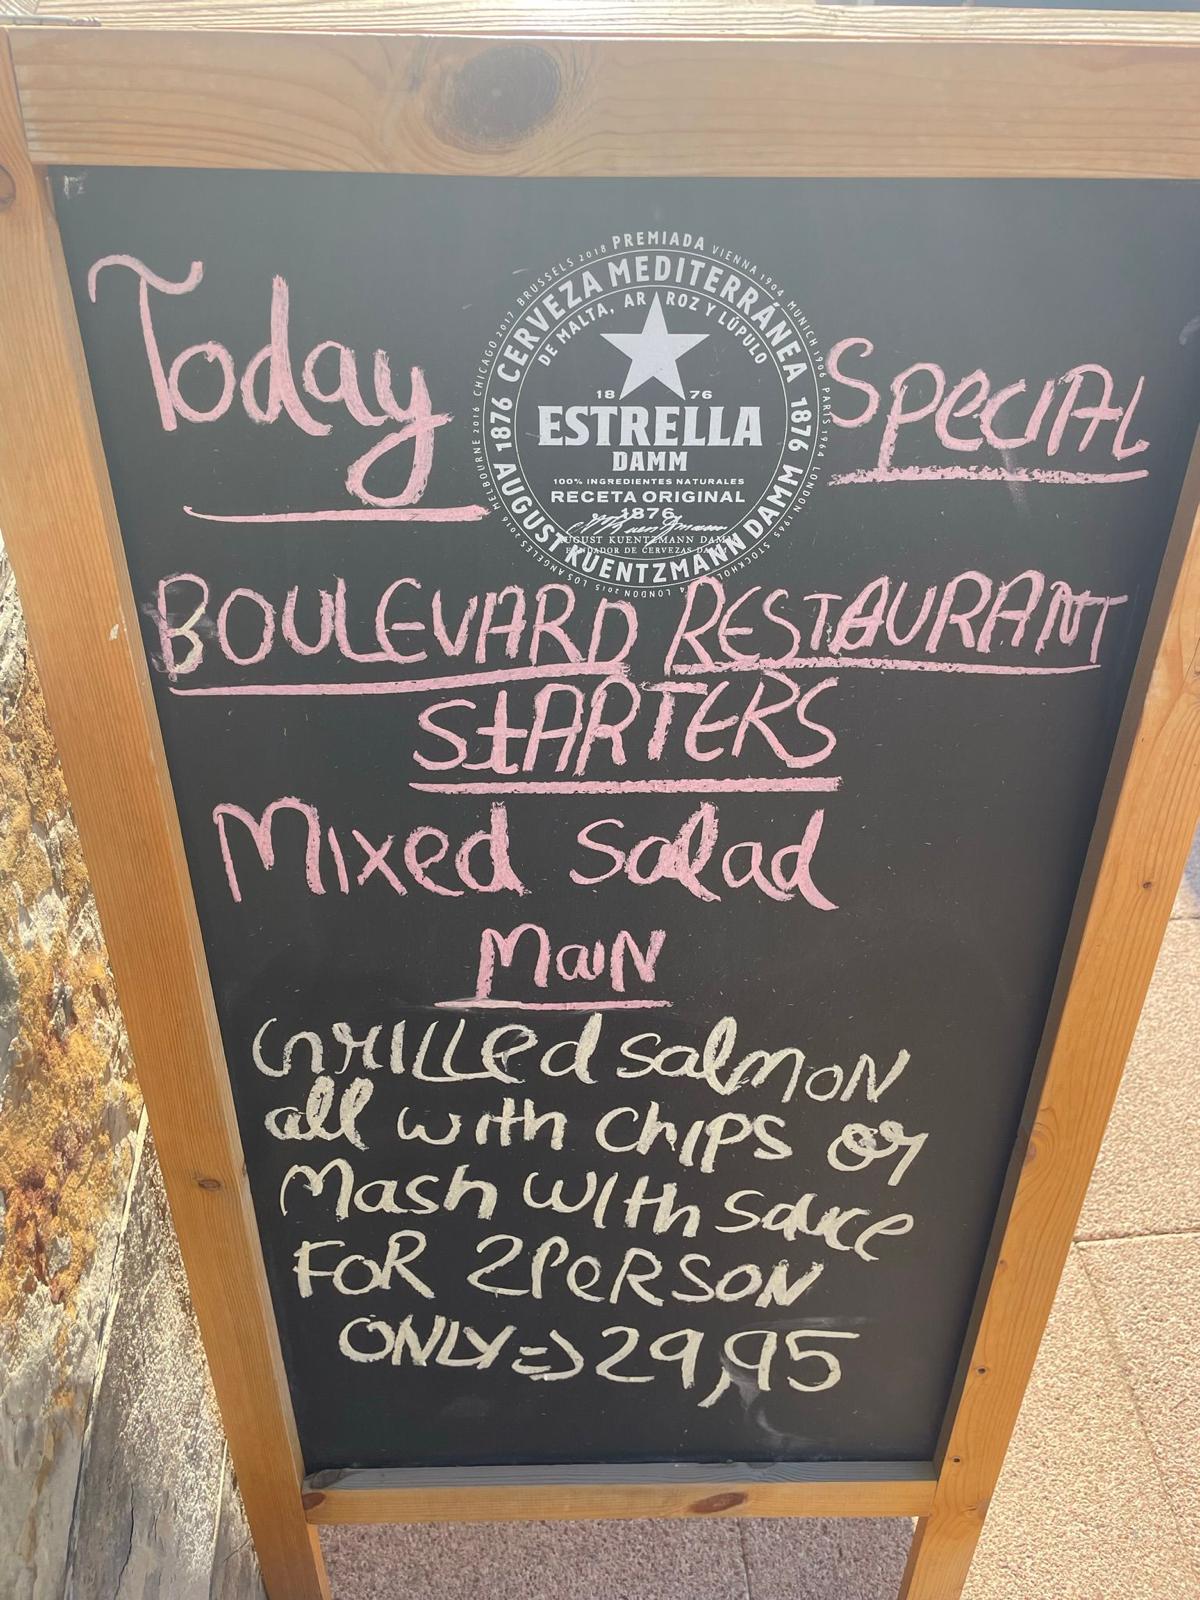 Today Special
PREMIADA VIENNA 1904 MUNICH 1906 PARIS 1964 LONDON 1965 STOCKHOLM
LONDON 2015 LOS ANGELES 2016 MELBOURNE 2016 CHICAGO 2017 BRUSSELS 2018
1876 CERVEZA MEDITERRÁNEA 1876
DE MALTA, ARROZ Y LÚPULO
1876
ESTRELLA
DAMM
100% INGREDIENTES NATURALES
RECETA ORIGINAL
1876
AUGUST KUENTZMANN DAMM
FUNDADOR DE CERVEZAS DAMM
AUGUST KUENTZMANN DAMM
BOULEVARD RESTAURANT
STARTERS
Mixed Salad
MaiN
GrILLed salmoN
all with chIPS or
Mash with sauce
FOR 2PeRSON
ONLY=>29,95